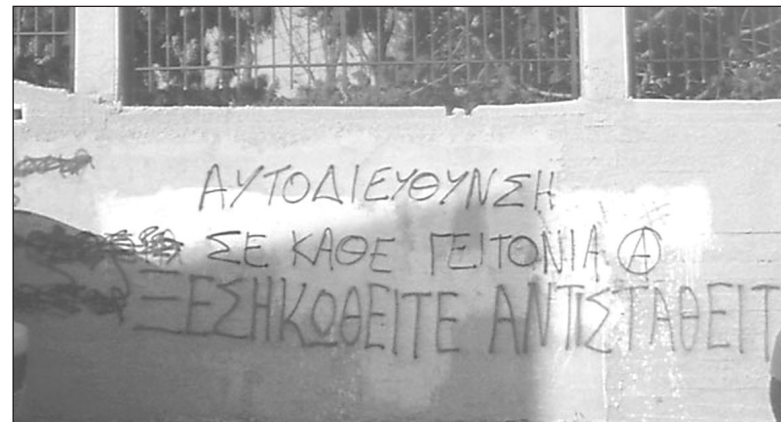 ΑΥΤΟΔΙΕΥΘΥΝΣΗ
ΣΕ ΚΑΘΕ ΓΕΙΤΟΝΙΑ Ⓐ
ΞΕΣΗΚΩΘΕΙΤΕ ΑΝΤΙΣΤΑΘΕΙΤ